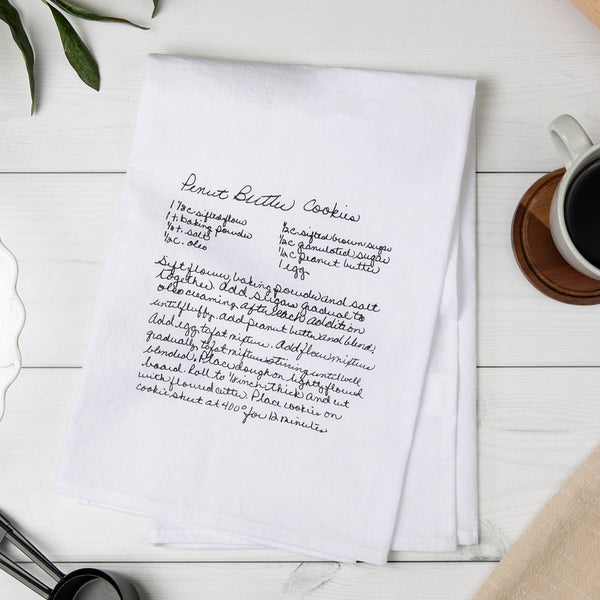 Penut Butter Cookies
1 ½ c sifted flour
1 t baking powder
½ t salt
½ c. oleo
½ c. sifted brown sugar
½ c granulated sugar
½ c peanut butter
1 egg
Sift flour, baking powder and salt
together. Add sugars gradual to
oleo creaming after each addition
until fluffy. add peanut butter and blend.
Add egg to fat mixture. Add flour mixture
gradually to fat mixture stirring until well
blended. Place dough on lightly floured
board. Roll to inch thick and cut
with floured cutter. Place cookies on
cookie sheet at 400° for 12 minutes